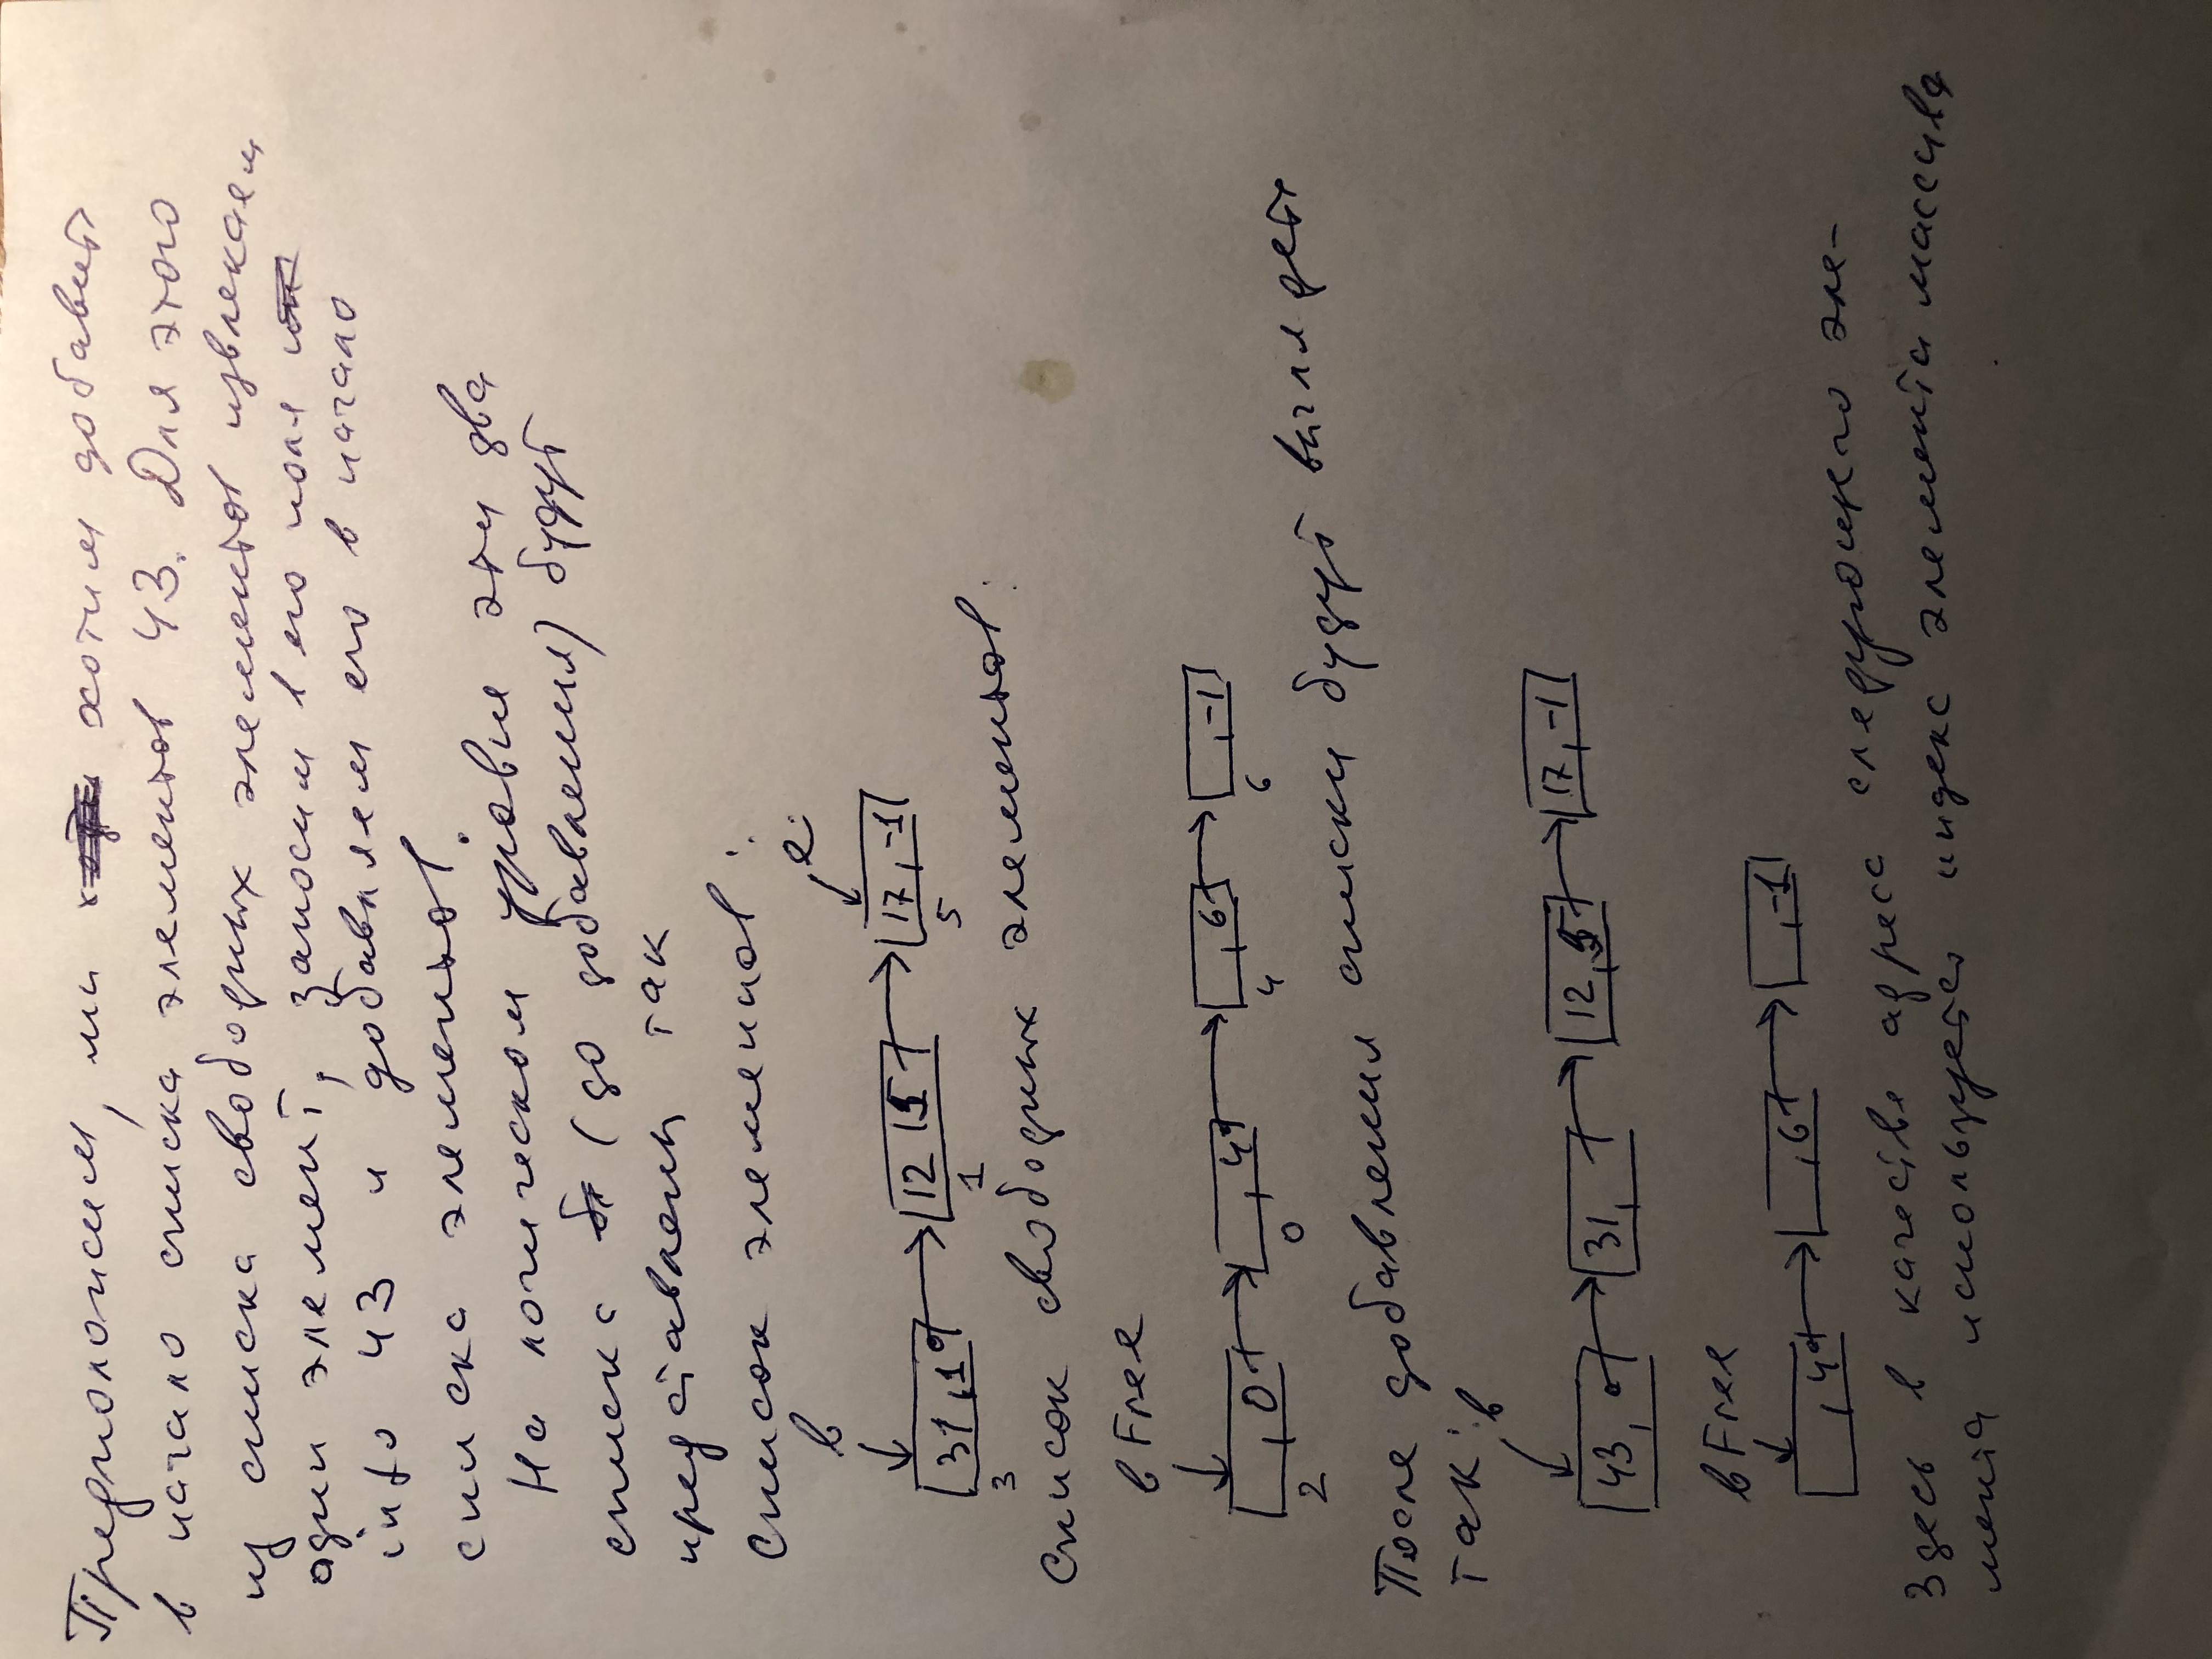 Предположим, ми хотим добавить
в начало списка элементов 43. Для этого
из списка свободных элементов извлекаем
один элемент, заносим в его поля
info 43 и добавляем его в начало
списка элементов.
На логическом уровне эти два
списка (до добавления) будут
представлены так
Список элементов:
b e
31, 1 12 5 17, -1
3 1 5
Список свободных элементов:
bFree
, 0 , 4 , 6 , -1
2 0 4 6
После добавления списки будут выглядеть
так: b
43, 31, 12, 5 17, -1
bFree
, 4 , 6 , -1
Здесь в качестве адреса следующего эле-
мента используется индекс элемента массива